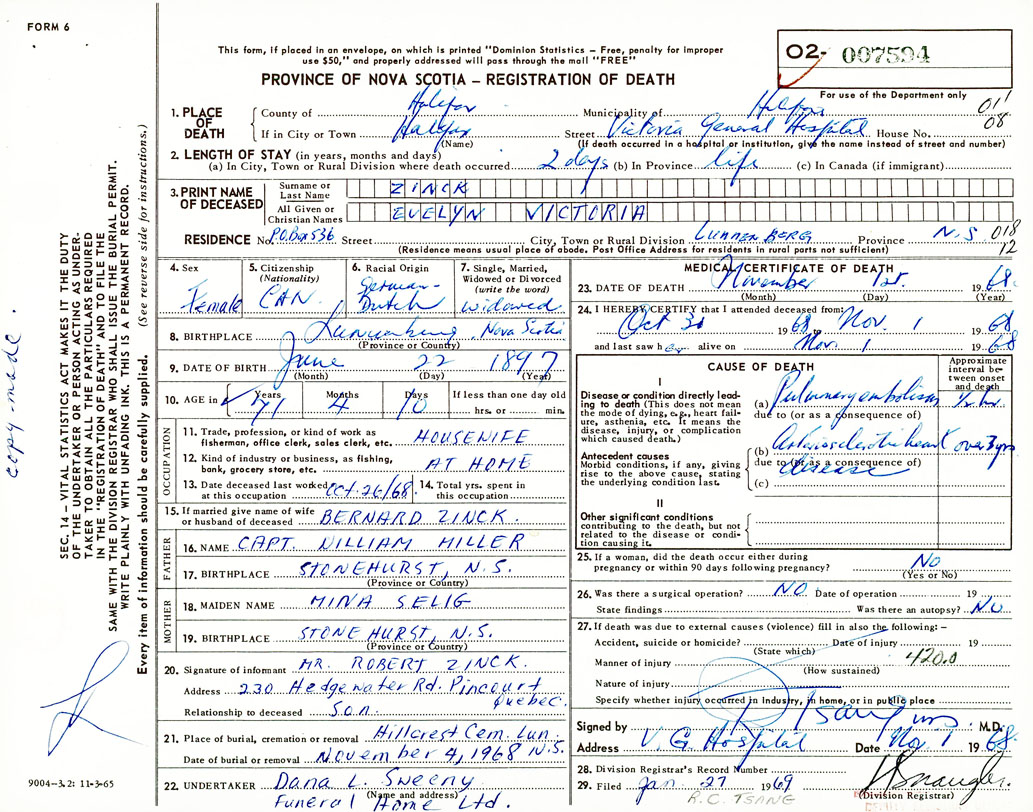 FORM 6
This form, if placed in an envelope, on which is printed "Dominion Statistics – Free, penalty for improper
use $50," and properly addressed will pass through the mail "FREE"
PROVINCE OF NOVA SCOTIA – REGISTRATION OF DEATH
02- 007594
For use of the Department only
011
08
1. PLACE OF DEATH
County of Halifax Municipality of Halifax
If in City or Town Halifax Street Victoria General Hospital House No.
(Name) (If death occurred in a hospital or institution, give the name instead of street and number)
2. LENGTH OF STAY (in years, months and days)
(a) In City, Town or Rural Division where death occurred 2 days (b) In Province life (c) In Canada (if immigrant)
3. PRINT NAME OF DECEASED
Surname or Last Name ZINCK
All Given or Christian Names EVELYN VICTORIA
RESIDENCE No. P.O. Box 536 Street City, Town or Rural Division LUNNENBERG Province N.S 018
12
(Residence means usual place of abode. Post Office Address for residents in rural parts not sufficient)
4. Sex Female
5. Citizenship (Nationality) CAN.
6. Racial Origin German-Dutch
7. Single, Married, Widowed or Divorced (write the word) widowed
8. BIRTHPLACE Lunenburg, Nova Scotia
(Province or County)
9. DATE OF BIRTH June 22 1897
(Month) (Day) (Year)
10. AGE in Years 71 Months 4 Days 10 If less than one day old
hrs. or min.
OCCUPATION
11. Trade, profession, or kind of work as
fisherman, office clerk, sales clerk, etc. HOUSEWIFE
12. Kind of industry or business, as fishing,
bank, grocery store, etc. AT HOME
13. Date deceased last worked at this occupation Oct. 26/68 14. Total yrs. spent in this occupation
15. If married give name of wife
or husband of deceased BERNARD ZINCK.
FATHER
16. NAME CAPT WILLIAM MILLER
17. BIRTHPLACE STONEHURST, N.S.
(Province or Country)
MOTHER
18. MAIDEN NAME MINA SELIG
19. BIRTHPLACE STONEHURST, N.S.
(Province or Country)
20. Signature of informant MR. ROBERT ZINCK.
Address 230 Hedgewater Rd. Pincourt
Quebec.
Relationship to deceased Son.
21. Place of burial, cremation or removal Hillcrest Cem. Lun.
Date of burial or removal November 4, 1968 N.S.
22. UNDERTAKER Dana L. Sweeny
(Name and address)
Funeral Home Ltd.
MEDICAL CERTIFICATE OF DEATH
23. DATE OF DEATH November 1st. 1968.
(Month) (Day) (Year)
24. I HEREBY CERTIFY that I attended deceased from:
Oct 30 1968, Nov. 1 1968
and last saw her alive on Nov. 1 1968
CAUSE OF DEATH
Approximate interval between onset and death
I
Disease or condition directly leading to death (This does not mean the mode of dying, e.g., heart failure, asthenia, etc. It means the disease, injury, or complication which caused death.)
(a) Pulmonary embolism 1/2 hr.
due to (or as a consequence of)
Antecedent causes
Morbid conditions, if any, giving rise to the above cause, stating the underlying condition last.
(b) Arteriosclerotic heart over 3 yrs
due to (or as a consequence of)
disease
(c)
II
Other significant conditions
contributing to the death, but not related to the disease or condition causing it.
25. If a woman, did the death occur either during
pregnancy or within 90 days following pregnancy? NO
(Yes or No)
26. Was there a surgical operation? NO Date of operation 19
State findings Was there an autopsy? NO
27. If death was due to external causes (violence) fill in also the following: –
Accident, suicide or homicide? Date of injury 19
(State which)
Manner of injury 420.0
(How sustained)
Nature of injury
Specify whether injury occurred in industry, in home, or in public place
Signed by M.D.
Address V. G Hospital Date Nov 1 1968.
28. Division Registrar's Record Number
29. Filed Jan. 27 1969
(Division Registrar)
R.C. TSANG
9004-3.2: 11-3-65
copy made.
SEC. 14 – VITAL STATISTICS ACT MAKES IT THE DUTY
OF THE UNDERTAKER OR PERSON ACTING AS UNDER-
TAKER TO OBTAIN ALL THE PARTICULARS REQUIRED
IN THE "REGISTRATION OF DEATH" AND TO FILE THE
SAME WITH THE DIVISION REGISTRAR WHO SHALL ISSUE THE BURIAL PERMIT.
WRITE PLAINLY WITH UNFADING INK. THIS IS A PERMANENT RECORD.
Every item of information should be carefully supplied. (See reverse side for instructions.)